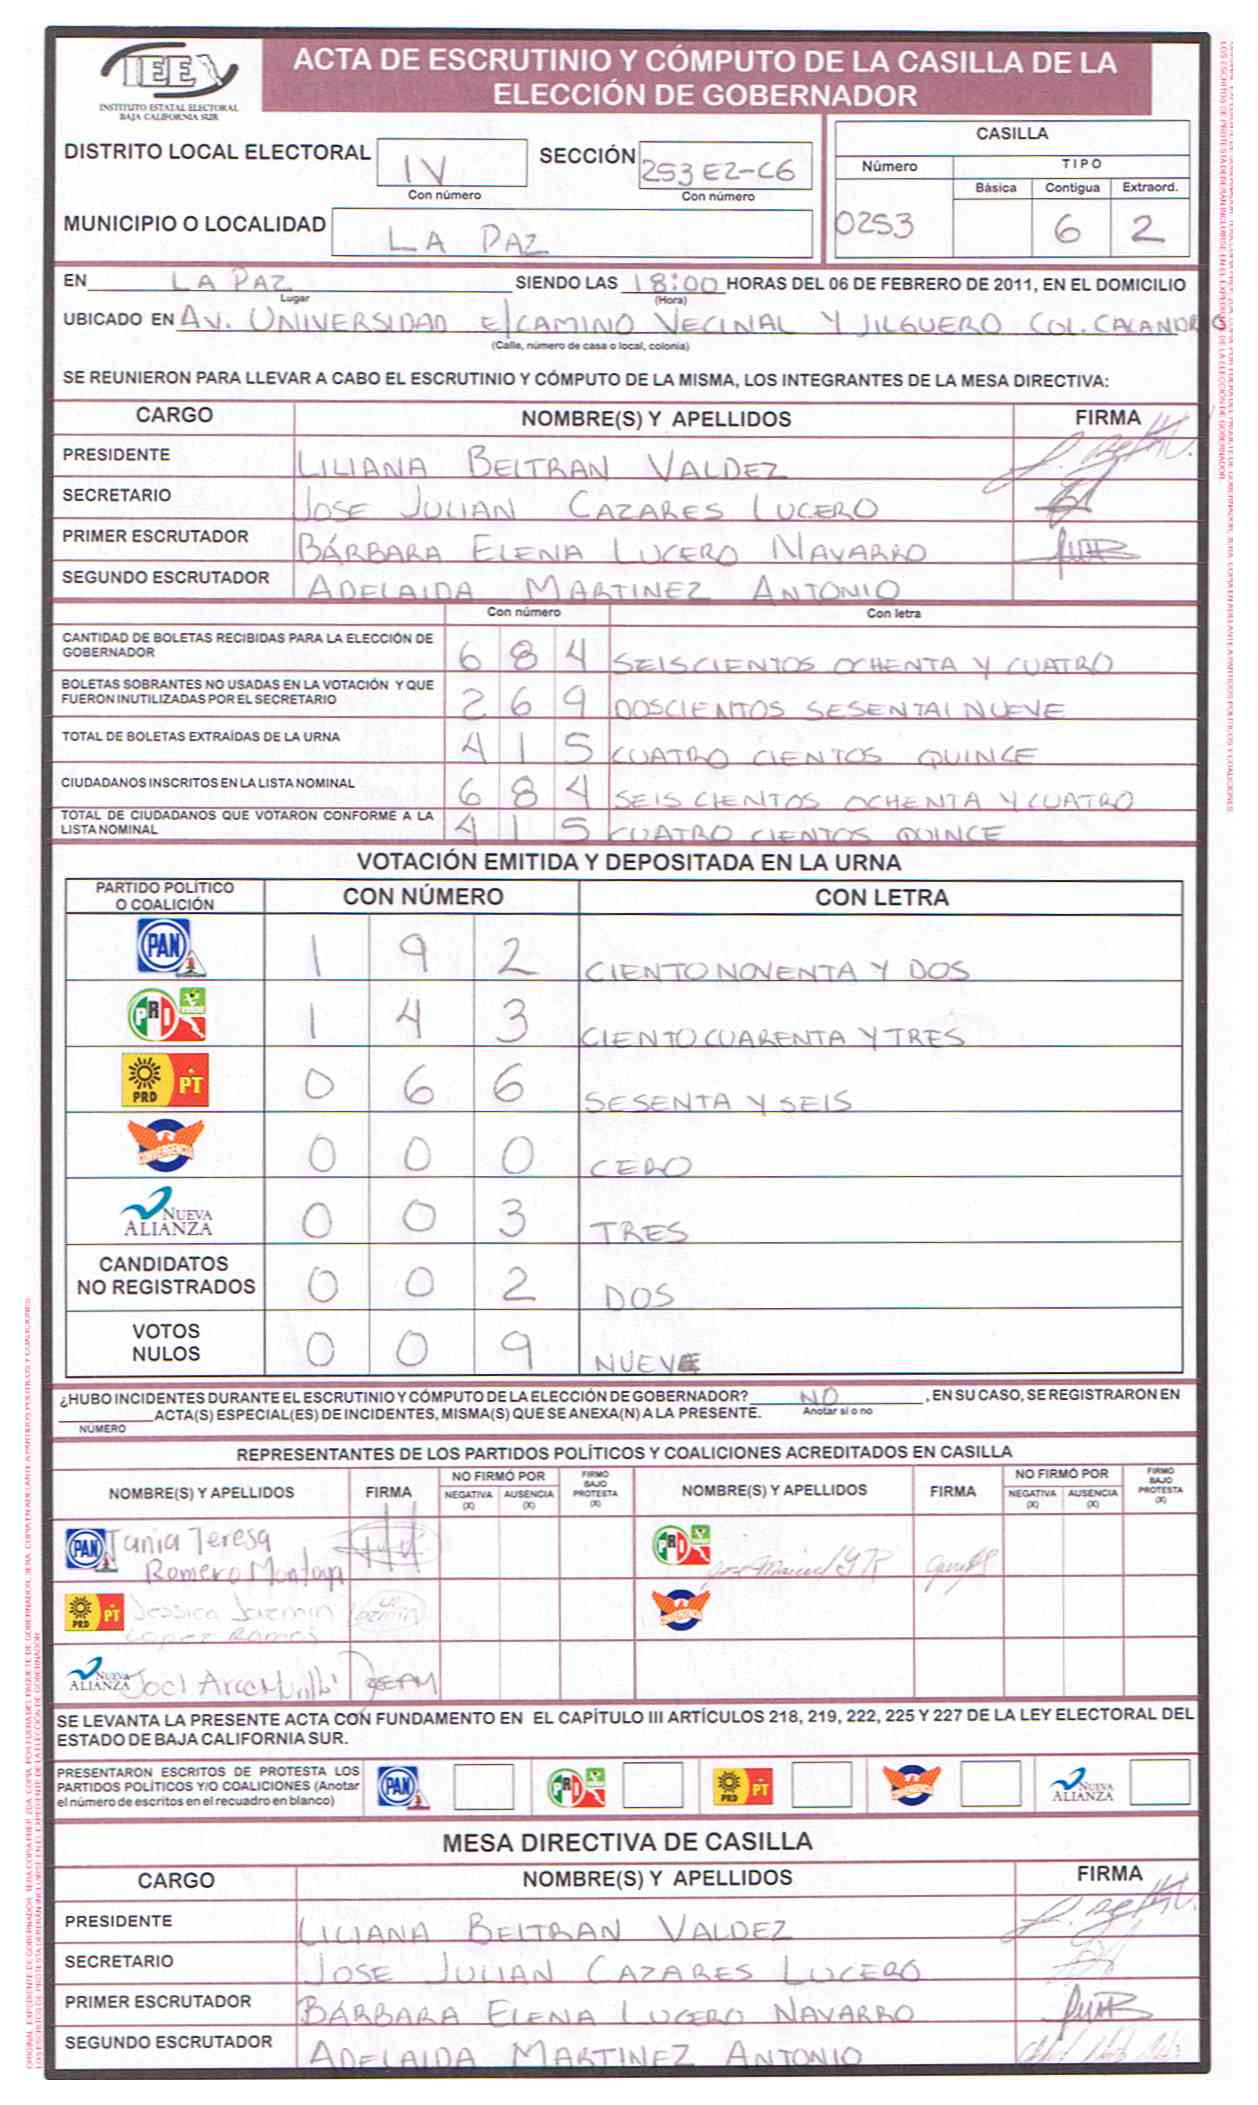 IEEX
INSTITUTO ESTATAL ELECTORAL
BAJA CALIFORNIA SUR
ACTA DE ESCRUTINIO Y CÓMPUTO DE LA CASILLA DE LA
ELECCIÓN DE GOBERNADOR
DISTRITO LOCAL ELECTORAL IV SECCIÓN 253 E2-C6
Con número Con número
MUNICIPIO O LOCALIDAD LA PAZ
CASILLA
Número TIPO
Básica Contigua Extraord.
0253 6 2
EN LA PAZ SIENDO LAS 18:00 HORAS DEL 06 DE FEBRERO DE 2011, EN EL DOMICILIO
Lugar (Hora)
UBICADO EN AV. UNIVERSIDAD E/CAMINO VECINAL Y JILGUERO COL. CALANDRIO
(Calle, número de casa o local, colonia)
SE REUNIERON PARA LLEVAR A CABO EL ESCRUTINIO Y CÓMPUTO DE LA MISMA, LOS INTEGRANTES DE LA MESA DIRECTIVA:
CARGO NOMBRE(S) Y APELLIDOS FIRMA
PRESIDENTE LILIANA BELTRAN VALDEZ
SECRETARIO JOSE JULIAN CAZARES LUCERO
PRIMER ESCRUTADOR BÁRBARA ELENA LUCERO NAVARRO
SEGUNDO ESCRUTADOR ADELAIDA MARTINEZ ANTONIO
Con número Con letra
CANTIDAD DE BOLETAS RECIBIDAS PARA LA ELECCIÓN DE
GOBERNADOR 6 8 4 SEISCIENTOS OCHENTA Y CUATRO
BOLETAS SOBRANTES NO USADAS EN LA VOTACIÓN Y QUE
FUERON INUTILIZADAS POR EL SECRETARIO 2 6 9 DOSCIENTOS SESENTAI NUEVE
TOTAL DE BOLETAS EXTRAÍDAS DE LA URNA 4 1 5 CUATRO CIENTOS QUINCE
CIUDADANOS INSCRITOS EN LA LISTA NOMINAL 6 8 4 SEIS CIENTOS OCHENTA Y CUATRO
TOTAL DE CIUDADANOS QUE VOTARON CONFORME A LA
LISTA NOMINAL 4 1 5 CUATRO CIENTOS QUINCE
VOTACIÓN EMITIDA Y DEPOSITADA EN LA URNA
PARTIDO POLÍTICO
O COALICIÓN CON NÚMERO CON LETRA
PAN 1 9 2 CIENTO NOVENTA Y DOS
PRI VERDE 1 4 3 CIENTO CUARENTA Y TRES
PRD PT 0 6 6 SESENTA Y SEIS
CONVERGENCIA 0 0 0 CERO
NUEVA ALIANZA 0 0 3 TRES
CANDIDATOS
NO REGISTRADOS 0 0 2 DOS
VOTOS
NULOS 0 0 9 NUEVE
¿HUBO INCIDENTES DURANTE EL ESCRUTINIO Y CÓMPUTO DE LA ELECCIÓN DE GOBERNADOR? NO , EN SU CASO, SE REGISTRARON EN
ACTA(S) ESPECIAL(ES) DE INCIDENTES, MISMA(S) QUE SE ANEXA(N) A LA PRESENTE. Anotar si o no
NÚMERO
REPRESENTANTES DE LOS PARTIDOS POLÍTICOS Y COALICIONES ACREDITADOS EN CASILLA
NOMBRE(S) Y APELLIDOS FIRMA NO FIRMÓ POR NEGATIVA (X) AUSENCIA (X) FIRMO BAJO PROTESTA (X) NOMBRE(S) Y APELLIDOS FIRMA NO FIRMÓ POR NEGATIVA (X) AUSENCIA (X) FIRMO BAJO PROTESTA (X)
PAN Tania Teresa
Romero Montoya
PRI
PRD PT Jessica Jazmin
Lopez Ramos
CONVERGENCIA
NUEVA ALIANZA Joel
SE LEVANTA LA PRESENTE ACTA CON FUNDAMENTO EN EL CAPÍTULO III ARTÍCULOS 218, 219, 222, 225 Y 227 DE LA LEY ELECTORAL DEL
ESTADO DE BAJA CALIFORNIA SUR.
PRESENTARON ESCRITOS DE PROTESTA LOS
PARTIDOS POLÍTICOS Y/O COALICIONES (Anotar
el número de escritos en el recuadro en blanco)
PAN PRI PRD PT CONVERGENCIA NUEVA ALIANZA
MESA DIRECTIVA DE CASILLA
CARGO NOMBRE(S) Y APELLIDOS FIRMA
PRESIDENTE LILIANA BELTRAN VALDEZ
SECRETARIO JOSE JULIAN CAZARES LUCERO
PRIMER ESCRUTADOR BÁRBARA ELENA LUCERO NAVARRO
SEGUNDO ESCRUTADOR ADELAIDA MARTINEZ ANTONIO